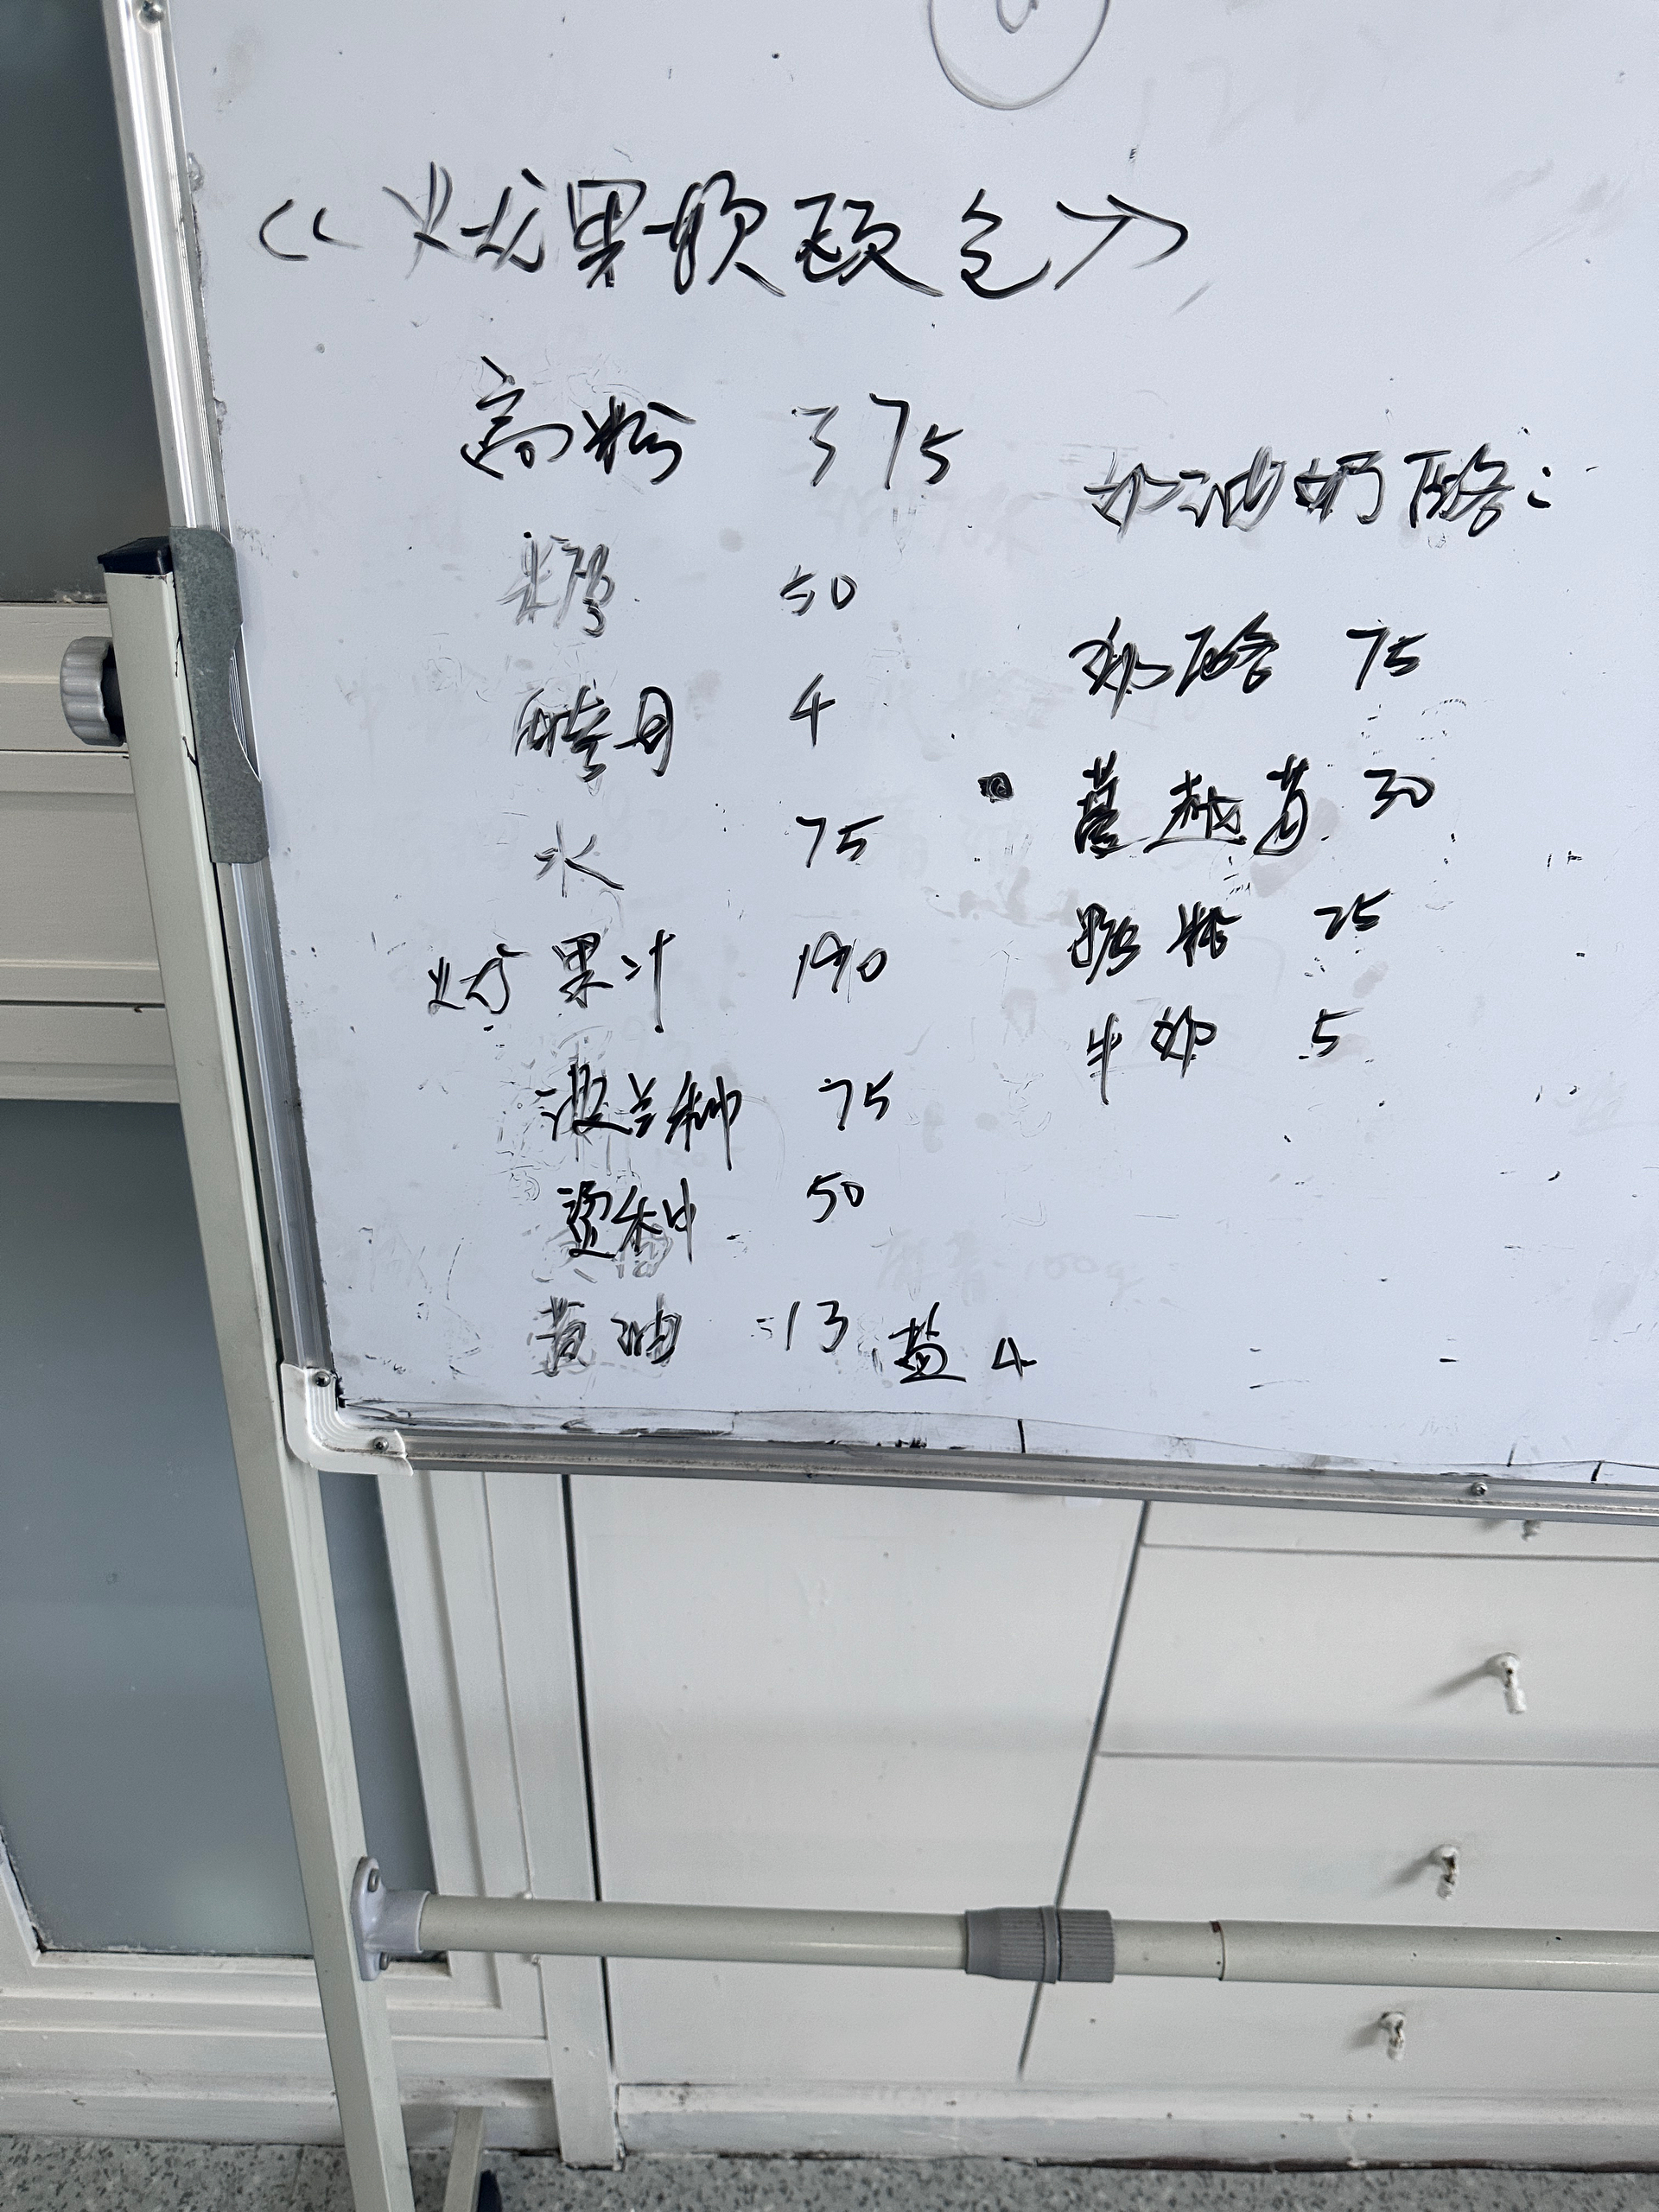 《火龙果软欧包》
高粉 375
糖 50
酵母 4
水 75
火龙果汁 190
波兰种 75
烫种 50
黄油 13 盐 4
奶油奶酪:
奶酪 75
蔓越莓 30
糖粉 25
牛奶 5